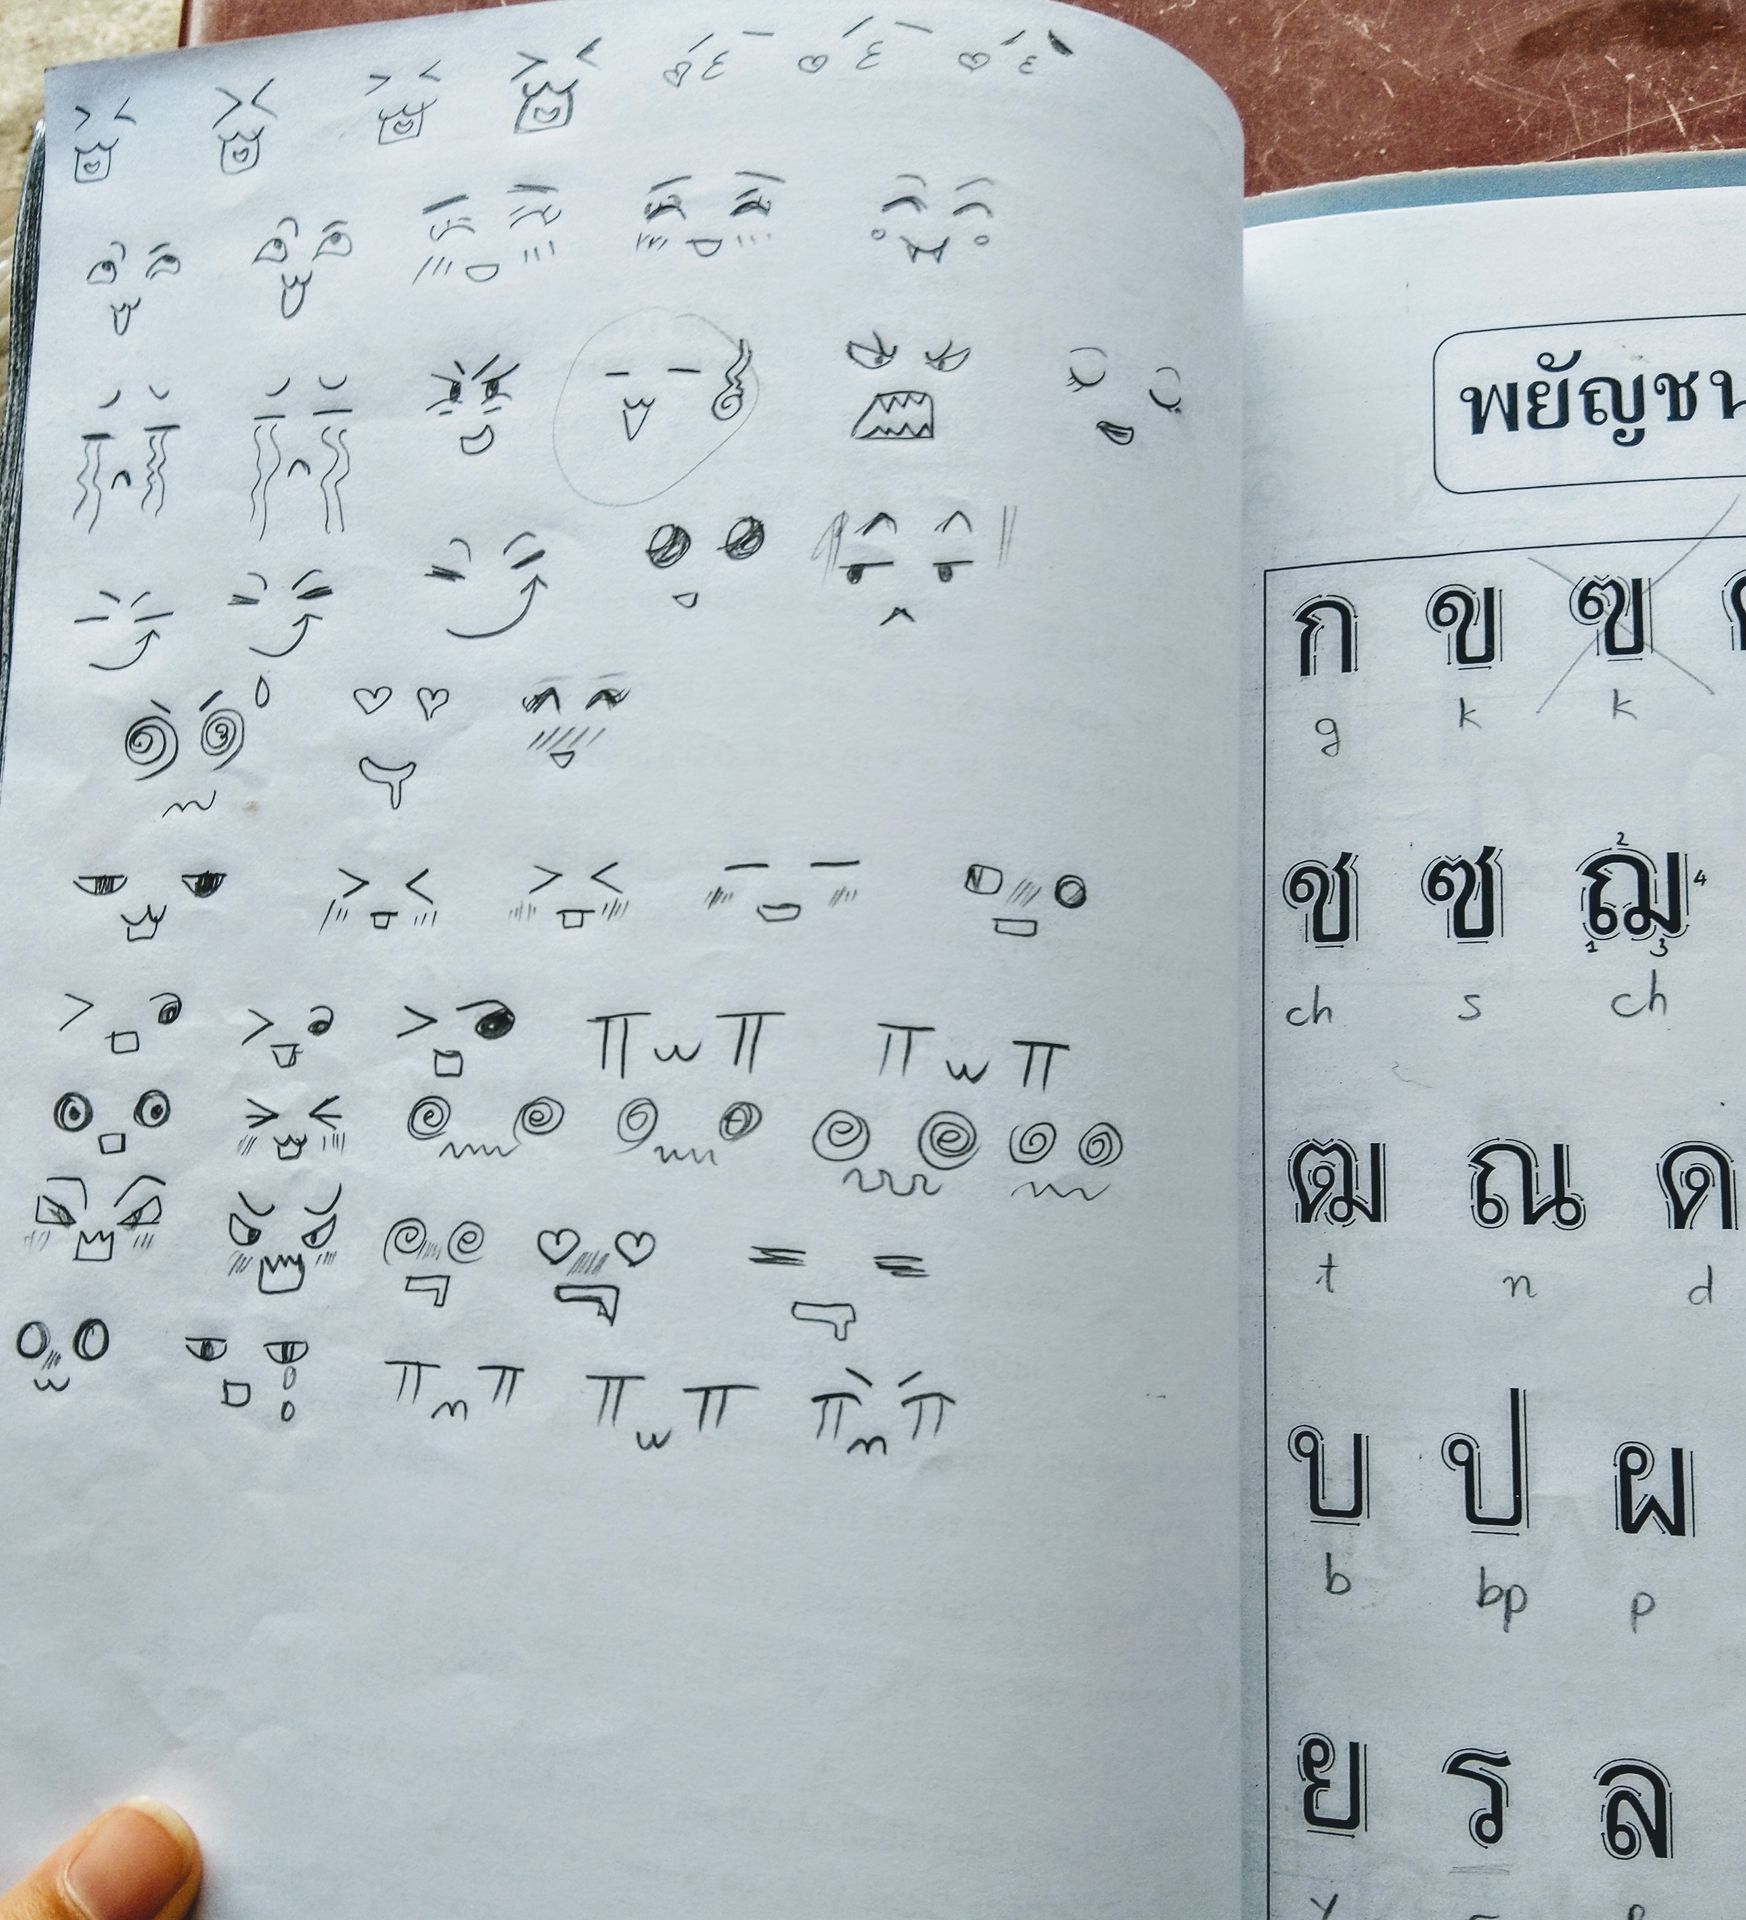 พยัญชน
ก ข ฃ
g k k
ช ซ ฌ
2
4
1 3
ch s ch
ฒ ณ ด
t n d
บ ป ผ
b bp p
ย ร ล
y